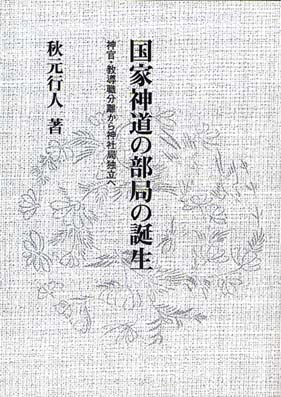 国家神道の部局の誕生
神官・教導職分離から神社局独立へ
秋元行人 著